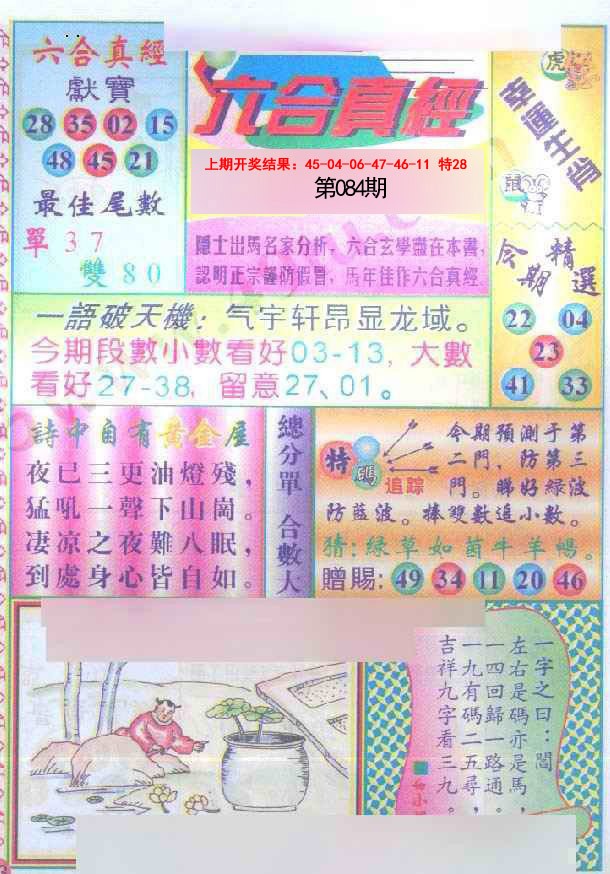 六合真經
獻寶
28 35 02 15
48 45 21
最佳尾數
單37
雙80
六合真經
上期开奖结果：45-04-06-47-46-11 特28
第084期
隱士出馬名家分析，六合玄學盡在本書，
認明正宗謹防假冒，馬年佳作六合真經
虎
幸運生肖
鼠
今期精選
22 04
23
41 33
一語破天機：气宇轩昂显龙域。
今期段數小數看好03-13，大數
看好27-38，留意27、01。
詩中自有黃金屋
夜已三更油燈殘，
猛吼一聲下山崗。
凄涼之夜難入眠，
到處身心皆自如。
總分單 合數大
特碼
追踪
今期預測于第
二門，防第三
門。睇好綠波
防藍波。捧雙數追小數。
猜：綠草如茵牛羊暢。
贈賜：49 34 11 20 46
一字之曰：閶
左右是碼亦是馬，
一四回歸一路通。
一九有碼二五尋，
吉祥九字看三九。